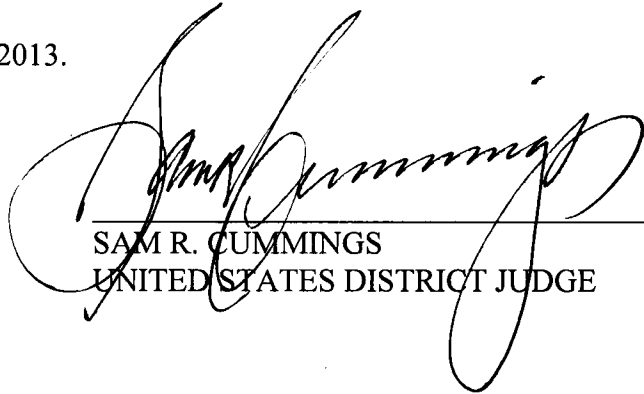 2013.
Sam R Cummings
SAM R. CUMMINGS
UNITED STATES DISTRICT JUDGE